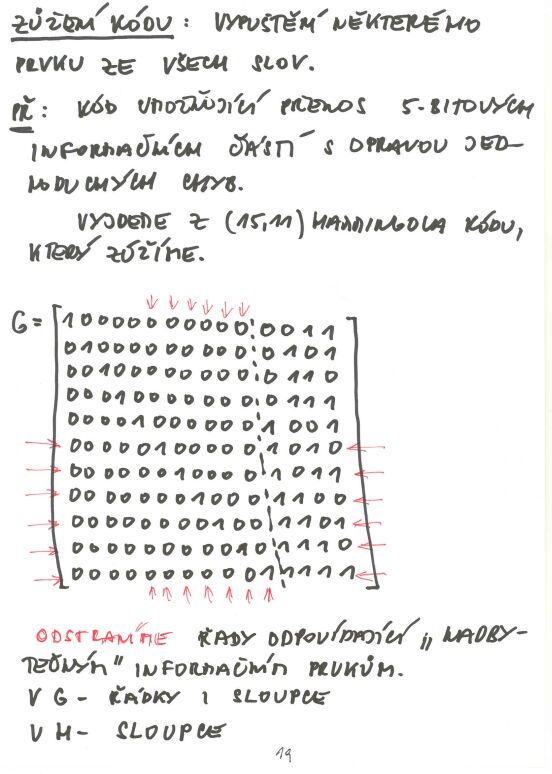 ZÚŽENÍ KÓDU: VYPUŠTĚNÍ NĚKTERÉHO
PRVKU ZE VŠECH SLOV.
PŘ: KÓD UMOŽŇUJÍCÍ PŘENOS 5-BITOVÝCH
INFORMAČNÍCH ČÁSTÍ S OPRAVOU JED-
NODUCHÝCH CHYB.
VYJDEME Z (15,11) HAMMINGOVA KÓDU,
KTERÝ ZÚŽÍME.
G = 1 0 0 0 0 0 0 0 0 0 0 0 0 1 1
0 1 0 0 0 0 0 0 0 0 0 0 1 0 1
0 0 1 0 0 0 0 0 0 0 0 0 1 1 0
0 0 0 1 0 0 0 0 0 0 0 0 1 1 1
0 0 0 0 1 0 0 0 0 0 0 1 0 0 1
0 0 0 0 0 1 0 0 0 0 0 1 0 1 0
0 0 0 0 0 0 1 0 0 0 0 1 0 1 1
0 0 0 0 0 0 0 1 0 0 0 1 1 0 0
0 0 0 0 0 0 0 0 1 0 0 1 1 0 1
0 0 0 0 0 0 0 0 0 1 0 1 1 1 0
0 0 0 0 0 0 0 0 0 0 1 1 1 1 1
ODSTRANÍME ŘADY ODPOVÍDAJÍCÍ „NADBY-
TEČNÝM" INFORMAČNÍM PRVKŮM.
V G - ŘÁDKY I SLOUPCE
V H - SLOUPCE
19